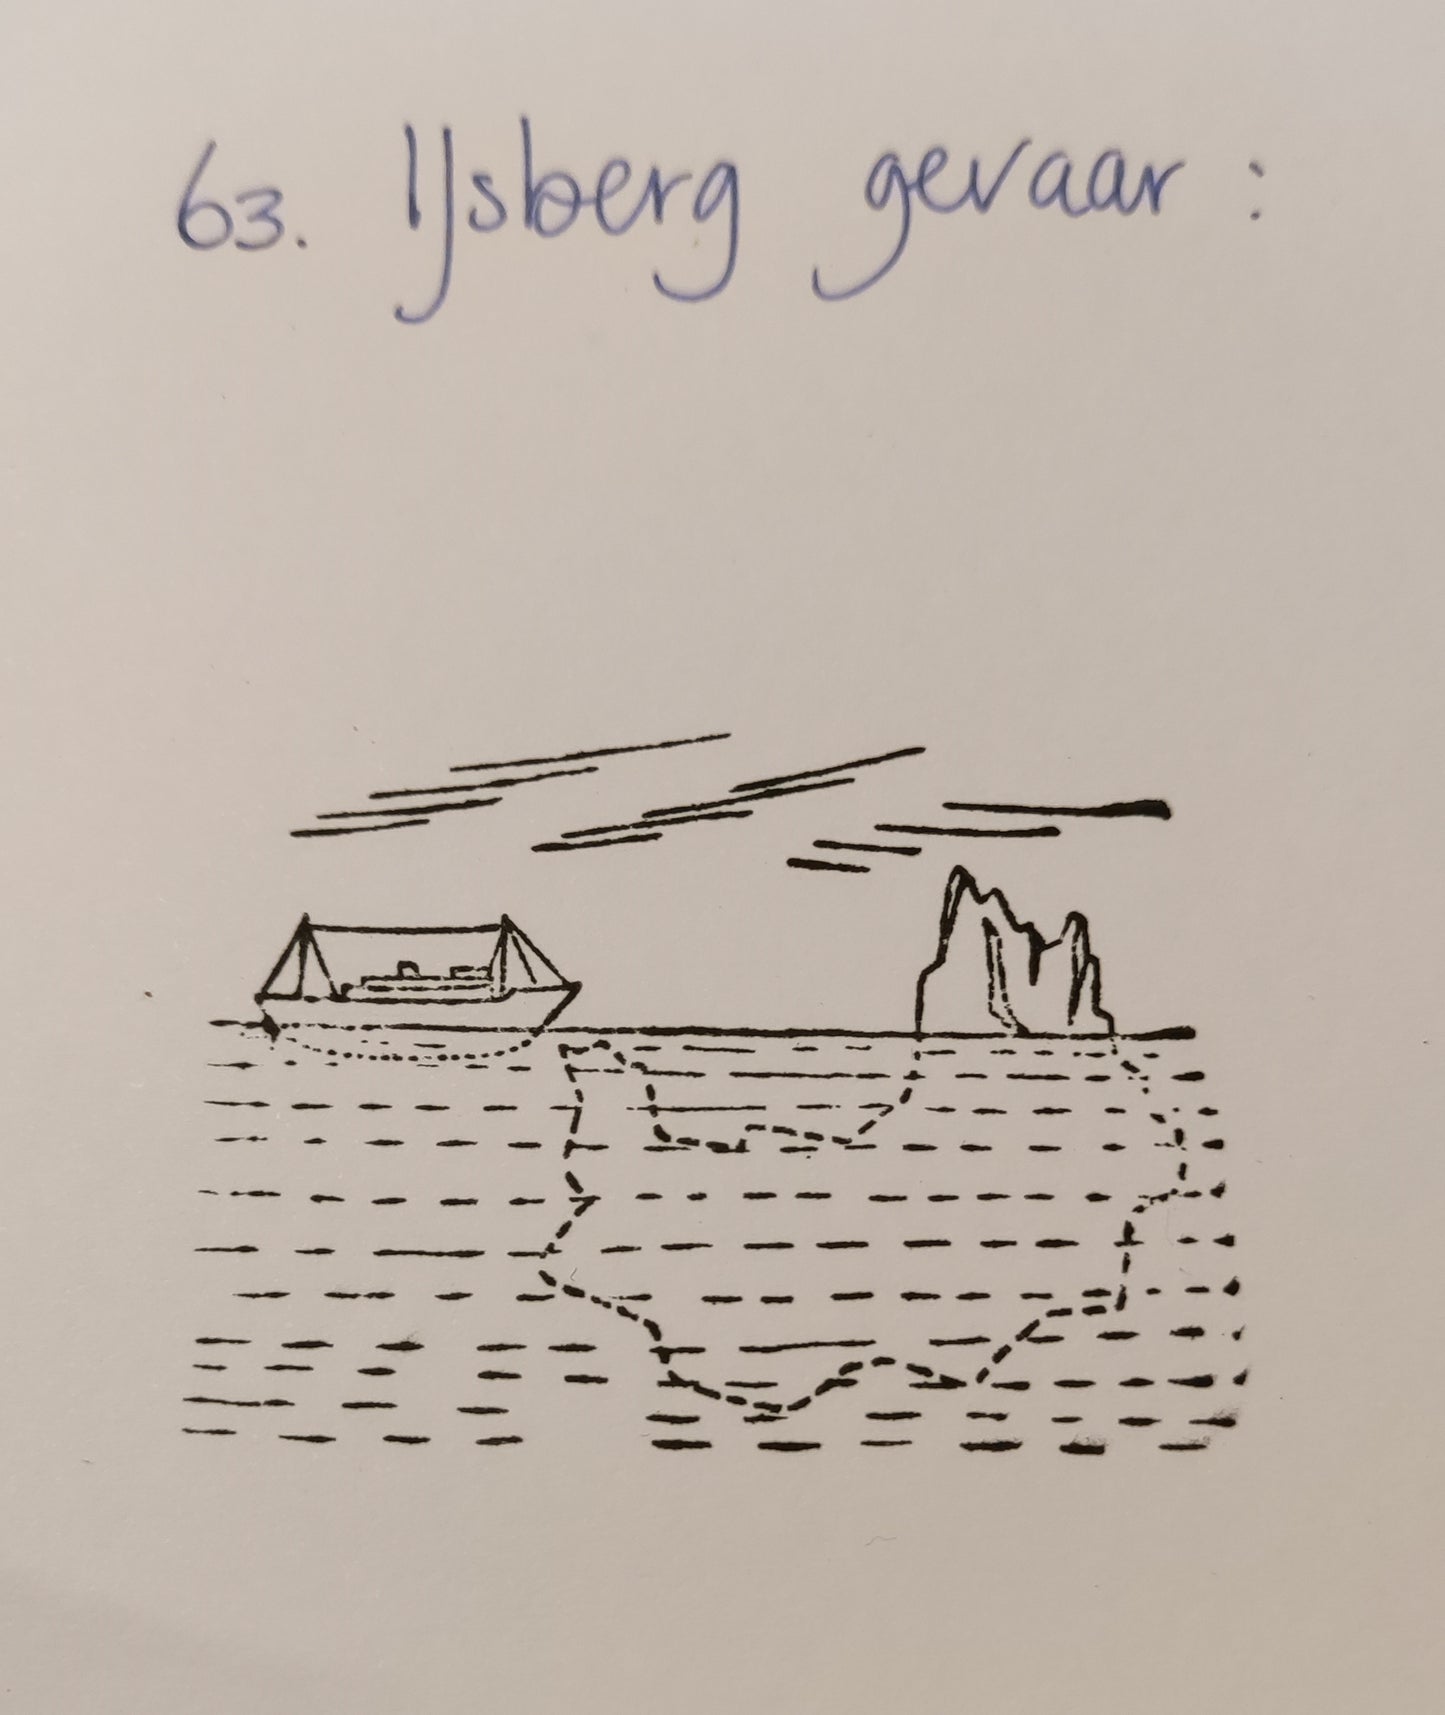 63. IJsberg gevaar :